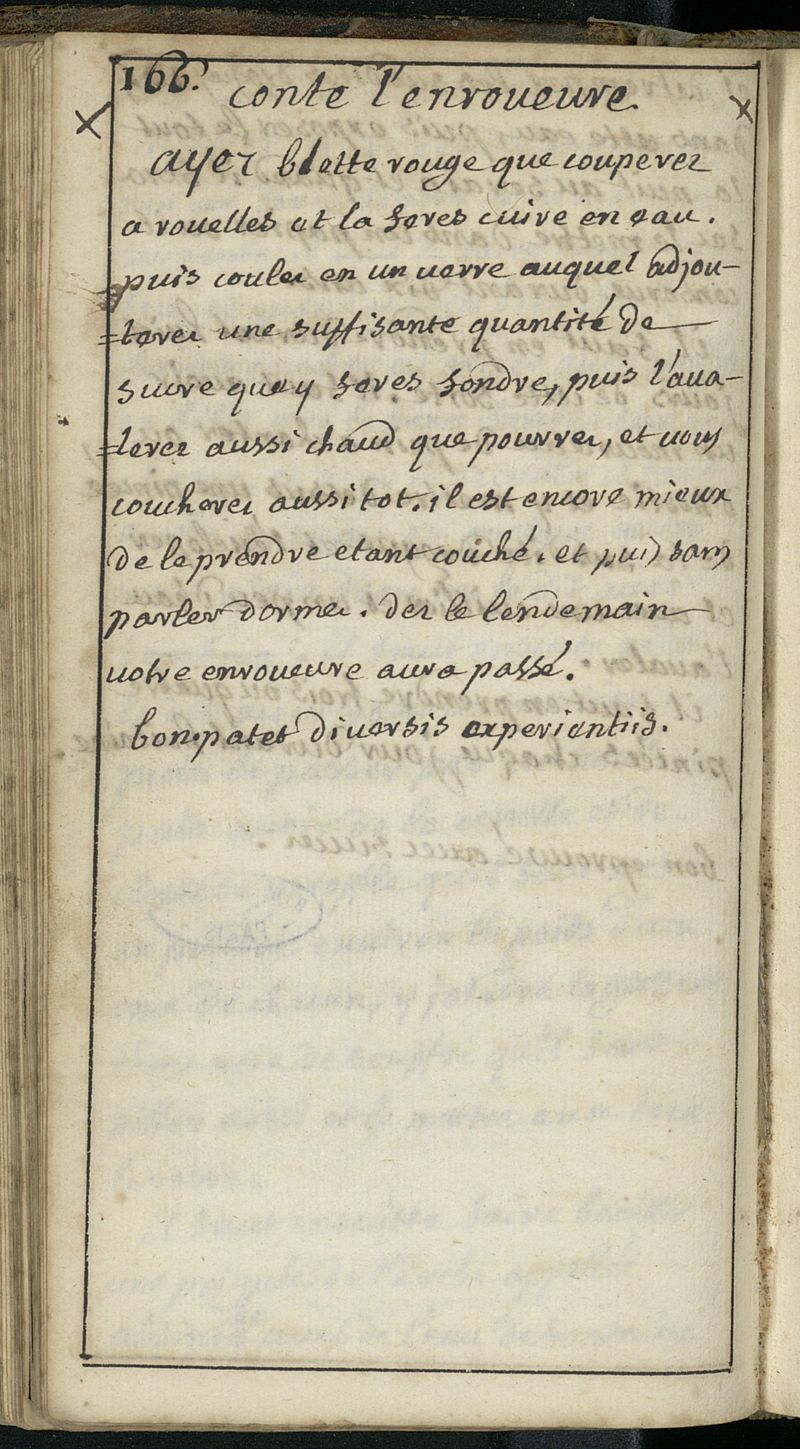 166.
conte l'enroueure.
ayez blette rouge que couperez
a rouelles et la feres cuire en eau.
puis coulez en un verre auquel adjou-
=terez une suffisante quantité de
sucre que y feres fondre, puis l'ava-
=lerez aussi chaud que pourrez, et vous
coucherez aussi tot. il est encore mieux
de le prendre etant couché. et puis sans
parler dormez. dez le lendemain
votre enroueure aura passé.
bon. patet diversis experientiis.